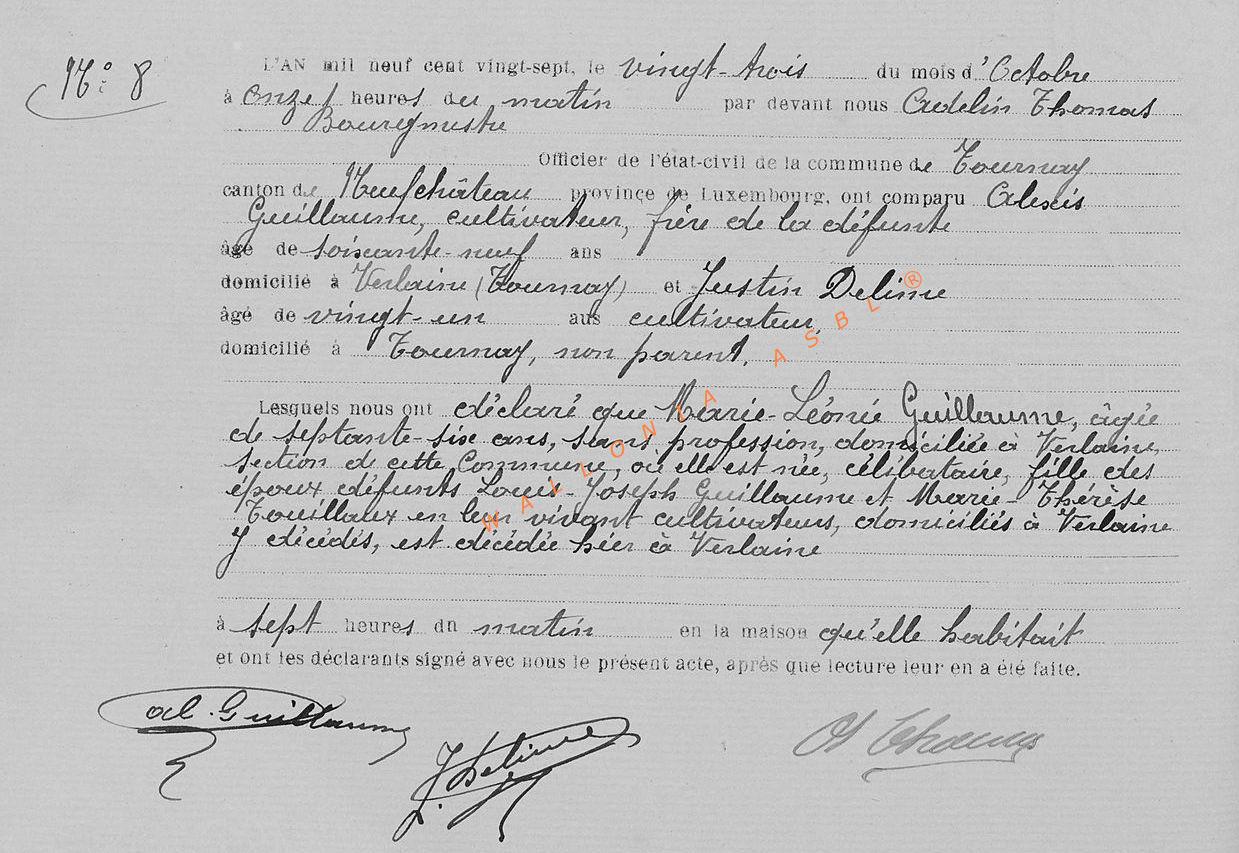 N° 8
L'AN mil neuf cent vingt-sept, le vingt-trois du mois d'Octobre
à onze heures du matin par devant nous Adelin Thomas
Bourgmestre
Officier de l'état-civil de la commune de Tournay
canton de Neufchâteau province de Luxembourg, ont comparu Alexis
Guillaume, cultivateur, frère de la défunte
âgé de soixante-neuf ans
domicilié à Verlaine (Tournay) et Justin Delime
âgé de vingt-un ans cultivateur,
domicilié à Tournay, non parent,
Lesquels nous ont déclaré que Marie-Léonie Guillaume, âgée
de septante-six ans, sans profession, domiciliée à Verlaine
section de cette Commune, où elle est née, célibataire, fille des
époux défunts Louis-Joseph Guillaume et Marie-Thérèse
Touillaux en leur vivant cultivateurs, domiciliés à Verlaine
y décédés, est décédée hier à Verlaine
à sept heures du matin en la maison qu'elle habitait
et ont les déclarants signé avec nous le présent acte, après que lecture leur en a été faite.
al. Guillaume
J. Delime
A Thomas
WALLONIA ASBL ®